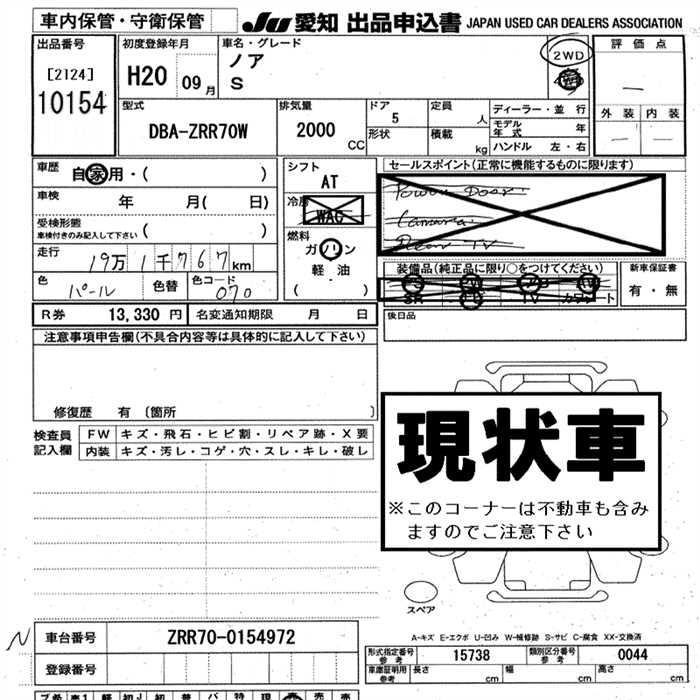 車内保管・守衛保管
JU 愛知 出品申込書 JAPAN USED CAR DEALERS ASSOCIATION
出品番号
[2124]
10154
初度登録年月
H20 09月
車名・グレード
ノア
S
2WD
4WD
評価点
—
外装 内装
— —
型式
DBA-ZRR70W
排気量
2000 CC
ドア
5
形状
定員
人
積載
kg
ディーラー・並行
モデル年式 年
ハンドル 左・右
車歴
自家用・( )
車検 年 月( 日)
受検形態
車検付きのみ記入して下さい ( )
走行
19万1千767km
色
パール
色替
色コード
070
シフト
AT
冷房
WAC
燃料
ガソリン
軽油
( )
セールスポイント(正常に機能するものに限ります)
Power Door
Camera
TV
装備品(純正品に限り○をつけてください)
SR TV カワシート
新車保証書
有・無
後日品
R券 13,330 円
名変通知期限 月 日
注意事項申告欄(不具合内容等は具体的に記入して下さい)
修復歴 有 〔箇所 〕
検査員記入欄
FW キズ・飛石・ヒビ割・リペア跡・X要
内装 キズ・汚レ・コゲ・穴・スレ・キレ・破レ
現状車
※このコーナーは不動車も含み
ますのでご注意下さい
スペア
A-キズ E-エクボ U-凹み W-補修跡 S-サビ C-腐食 XX-交換済
N
車台番号 ZRR70-0154972
登録番号
形式指定番号 参考 15738
類別区分番号 参考 0044
車庫証明用 参考 長さ cm 幅 cm 高さ cm